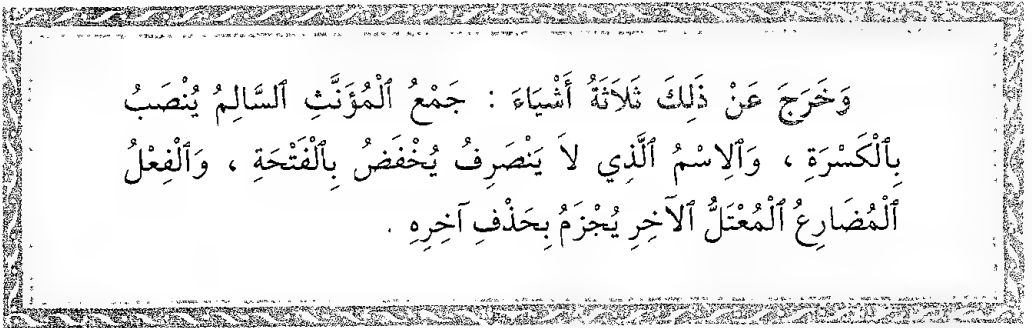 وَخَرَجَ عَنْ ذَلِكَ ثَلَاثَةُ أَشْيَاءَ : جَمْعُ ٱلْمُؤَنَّثِ ٱلسَّالِمُ يُنْصَبُ
بِٱلْكَسْرَةِ ، وَٱلِاسْمُ ٱلَّذِي لَا يَنْصَرِفُ يُخْفَضُ بِٱلْفَتْحَةِ ، وَٱلْفِعْلُ
ٱلْمُضَارِعُ ٱلْمُعْتَلُّ ٱلآخِرِ يُجْزَمُ بِحَذْفِ آخِرِهِ .